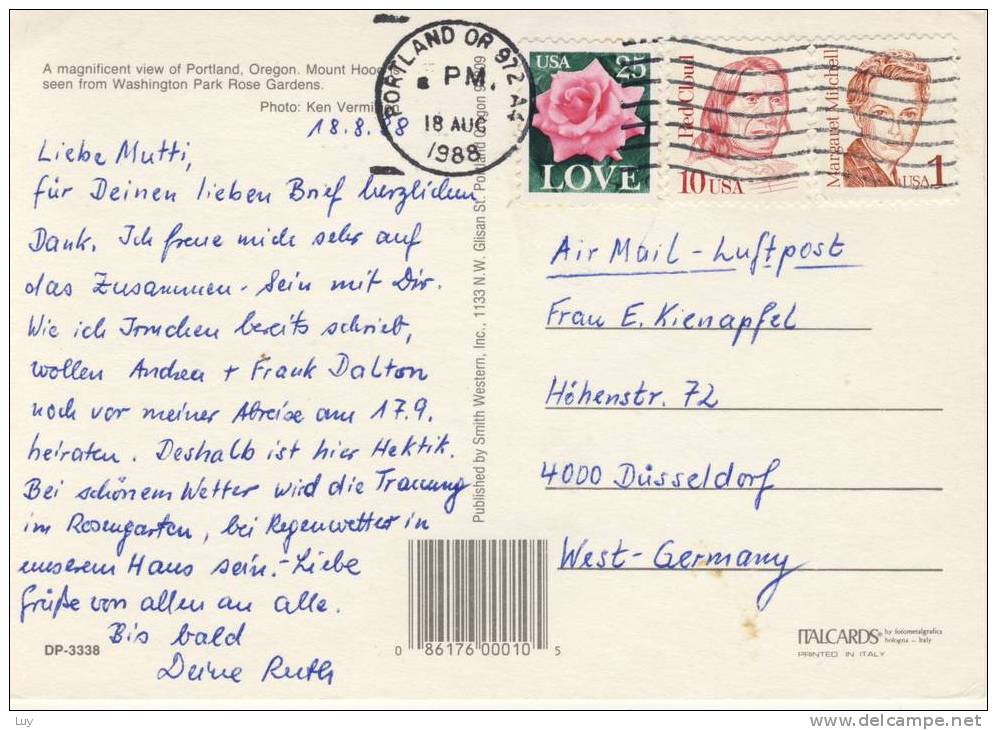 A magnificent view of Portland, Oregon. Mount Hood
seen from Washington Park Rose Gardens.
Photo: Ken
18.8.88
Liebe Mutti,
für Deinen lieben Brief herzlichen
Dank. Ich freue mich sehr auf
das Zusammen-Sein mit Dir.
Wie ich Irmchen bereits schrieb,
wollen Andrea + Frank Dalton
noch vor meiner Abreise am 17.9.
heiraten. Deshalb ist hier Hektik.
Bei schönem Wetter wird die Trauung
im Rosengarten, bei Regenwetter in
unserem Haus sein.- Liebe
Grüße von allen an alle.
Bis bald
Deine Ruth
DP-3338
PORTLAND OR 972
PM
18 AUG
1988
Published by Smith Western, Inc., 1133 N.W. Glisan St. Portland Oregon
0 86176 00010 5
USA 25
LOVE
Red Cloud
10 USA
Margaret Mitchell
USA 1
Air Mail - Luftpost
Frau E. Kienapfel
Höhenstr. 72
4000 Düsseldorf
West-Germany
ITALCARDS by fotometalgrafica
bologna - Italy
PRINTED IN ITALY
Luy
delcampe.net